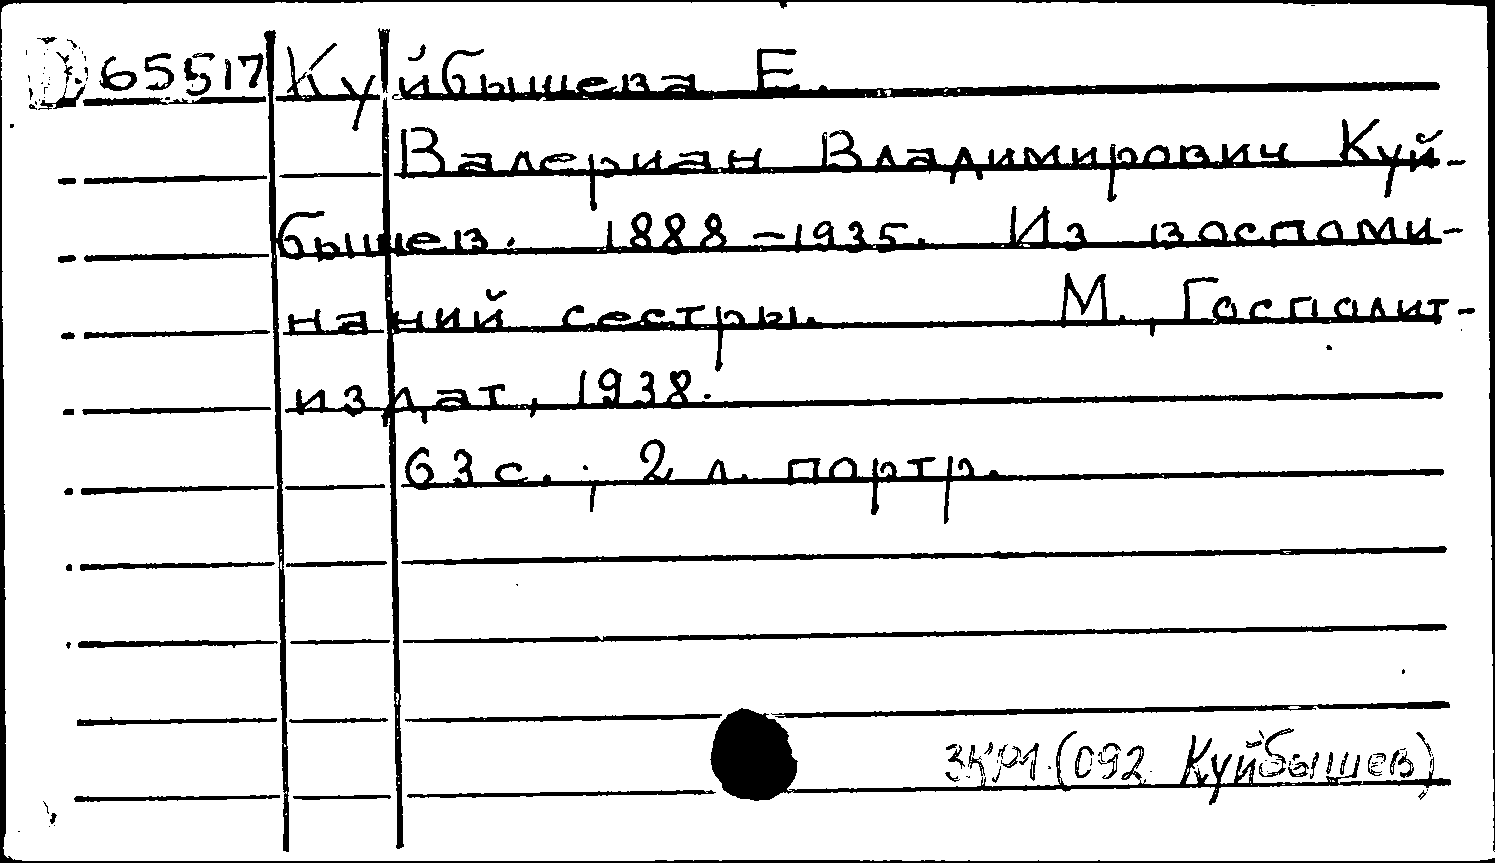 65517 Куйбышева Е.
Валериан Владимирович Куй-
бышев. 1888-1935. Из воспоми-
наний сестры. М., Госполит-
издат, 1938.
63 с.; 2 л. портр.
(092 Куйбышев)